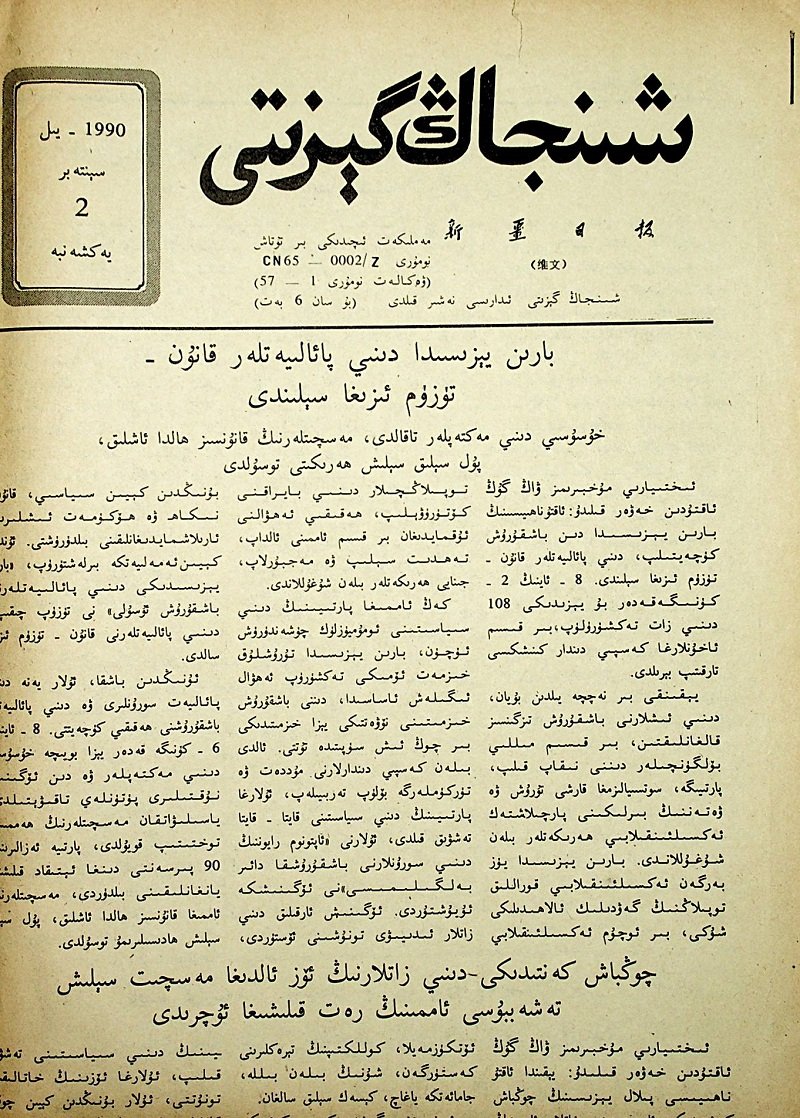 شىنجاڭ گېزىتى
1990 - يىل
سېنتەبىر
2
يەكشەنبە
新疆日报
(维文)
مەملىكەت ئىچىدىكى بىر تۇتاش
نومۇرى CN65 — 0002/Z
(ۋەكالەت نومۇرى 1 — 57)
شىنجاڭ گېزىتى ئىدارىسى نەشر قىلدى (بۇ سان 6 بەت)
بارىن يېزىسىدا دىنىي پائالىيەتلەر قانۇن -
تۈزۈم ئىزىغا سېلىندى
خۇسۇسىي دىنىي مەكتەپلەر تاقالدى، مەسچىتلەرنىڭ قانۇنسىز ھالدا ئاشلىق،
پۇل سېلىق سېلىش ھەرىكىتى توسۇلدى
ئىختىيارىي مۇخبىرىمىز ۋاڭ گۇڭ
ئاقتۇدىن خەۋەر قىلىدۇ: ئاقتۇ ناھىيىسىنىڭ
بارىن يېزىسىدا دىن باشقۇرۇش
كۈچەيتىلىپ، دىنىي پائالىيەتلەر قانۇن -
تۈزۈم ئىزىغا سېلىندى. 8 - ئاينىڭ 2 -
كۈنىگە قەدەر بۇ يېزىدىكى 108
دىنىي زات تەكشۈرۈلۈپ، بىر قىسىم
ئاخۇنلارغا كەسپىي دىندار كىنىشكىسى
تارقىتىپ بېرىلدى.
يېقىنقى بىر نەچچە يىلدىن بۇيان،
دىنىي ئىشلارنى باشقۇرۇش تىزگىنسىز
قالغانلىقتىن، بىر قىسىم مىللىي
بۆلگۈنچىلەر دىننى نىقاب قىلىپ،
پارتىيىگە، سوتسىيالىزمغا قارشى تۇرۇش ۋە
ۋەتەننىڭ بىرلىكىنى پارچىلاشتەك
ئەكسىلئىنقىلابىي ھەرىكەتلەر بىلەن
شۇغۇللاندى. بارىن يېزىسىدا يۈز
بەرگەن ئەكسىلئىنقىلابىي قوراللىق
توپىلاڭنىڭ گەۋدىلىك ئالاھىدىلىكى
شۇكى، بىر ئوچۇم ئەكسىلئىنقىلابىي
توپىلاڭچىلار دىنىي بايراقنى
كۆتۈرۈۋېلىپ، ھەقىقىي ئەھۋالنى
ئۇقمايدىغان بىر قىسىم ئاممىنى ئالداپ،
تەھدىت سېلىپ ۋە مەجبۇرلاپ،
جىنايى ھەرىكەتلەر بىلەن شۇغۇللاندى.
كەڭ ئاممىغا پارتىيىنىڭ دىنىي
سىياسىتىنى ئومۇميۈزلۈك چۈشەندۈرۈش
ئۈچۈن، بارىن يېزىسىدا تۇرۇشلۇق
خىزمەت ئۆمىكى تەكشۈرۈپ ئەھۋال
ئىگىلەش ئاساسىدا، دىننى باشقۇرۇش
خىزمىتىنى نۆۋەتتىكى يېزا خىزمىتىدىكى
بىر چوڭ ئىش سۈپىتىدە تۇتتى. ئالدى
بىلەن كەسپىي دىندارلارنى مۇددەت ۋە
تۈركۈملەرگە بۆلۈپ تەربىيىلەپ، ئۇلارغا
پارتىيىنىڭ دىنىي سىياسىتىنى قايتا - قايتا
تەشۋىق قىلدى، ئۇلارنى «ئاپتونوم رايوننىڭ
دىنىي سورۇنلارنى باشقۇرۇشقا دائىر
بەلگىلىمىسى»نى ئۆگىنىشكە
ئۇيۇشتۇردى. ئۆگىنىش ئارقىلىق دىنىي
زاتلار ئىدىيىۋى تونۇشىنى ئۆستۈردى،
بۇنىڭدىن كېيىن سىياسىي،
نىكاھ ۋە ھۆكۈمەت
ئارىلاشمايدىغانلىقىنى بىلدۈرۈشتى.
كېيىن ئەمەلىيەتكە بىرلەشتۈرۈپ،
يېزىسىدىكى دىنىي پائالىيەتلەرنى
باشقۇرۇش ئۇسۇلى» نى تۈزۈپ چىقىپ،
دىنىي پائالىيەتلەرنى قانۇن - تۈزۈم
سالدى.
ئۇنىڭدىن باشقا، ئۇلار يەنە
پائالىيەت سورۇنلىرى ۋە دىنىي
باشقۇرۇشنى ھەقىقىي كۈچەيتتى. 8 -
6 - كۈنگە قەدەر يېزا بويىچە
دىنىي مەكتەپلەر ۋە دىن
نۇقتىلىرى پۈتۈنلەي تاقىۋېتىلدى،
ياسىلىۋاتقان مەسچىتلەرنىڭ ھەممىسى
توختىتىپ قويۇلدى، پارتىيە
90 پىرسەنتى دىنغا ئېتىقاد
يانغانلىقىنى بىلدۈردى، مەسچىتلەرنىڭ
ئاممىغا قانۇنسىز ھالدا ئاشلىق، پۇل
سېلىش ھادىسىلىرىمۇ توسۇلدى.
چوڭباش كەنتىدىكى دىنىي زاتلارنىڭ ئۆز ئالدىغا مەسچىت سېلىش
تەشەببۇسى ئاممىنىڭ رەت قىلىشىغا ئۇچرىدى
ئىختىيارىي مۇخبىرىمىز ۋاڭ گۇڭ
ئاقتۇدىن خەۋەر قىلىدۇ: يېقىندا ئاقتۇ
ناھىيىسى پىلال يېزىسىنىڭ چوڭباش
ئۆتكۈزمەيلا، كوللېكتىپنىڭ تېرەكلىرىنى
كەستۈرگەن، شۇنىڭ بىلەن بىللە،
جامائەتكە ياغاچ، كېسەك سېلىق سالغان.
يىنىڭ دىنىي سىياسىتىنى
قىلىپ، ئۇلارغا ئۆزىنىڭ
تونۇتتى، ئۇلار بۇنىڭدىن كېيىن